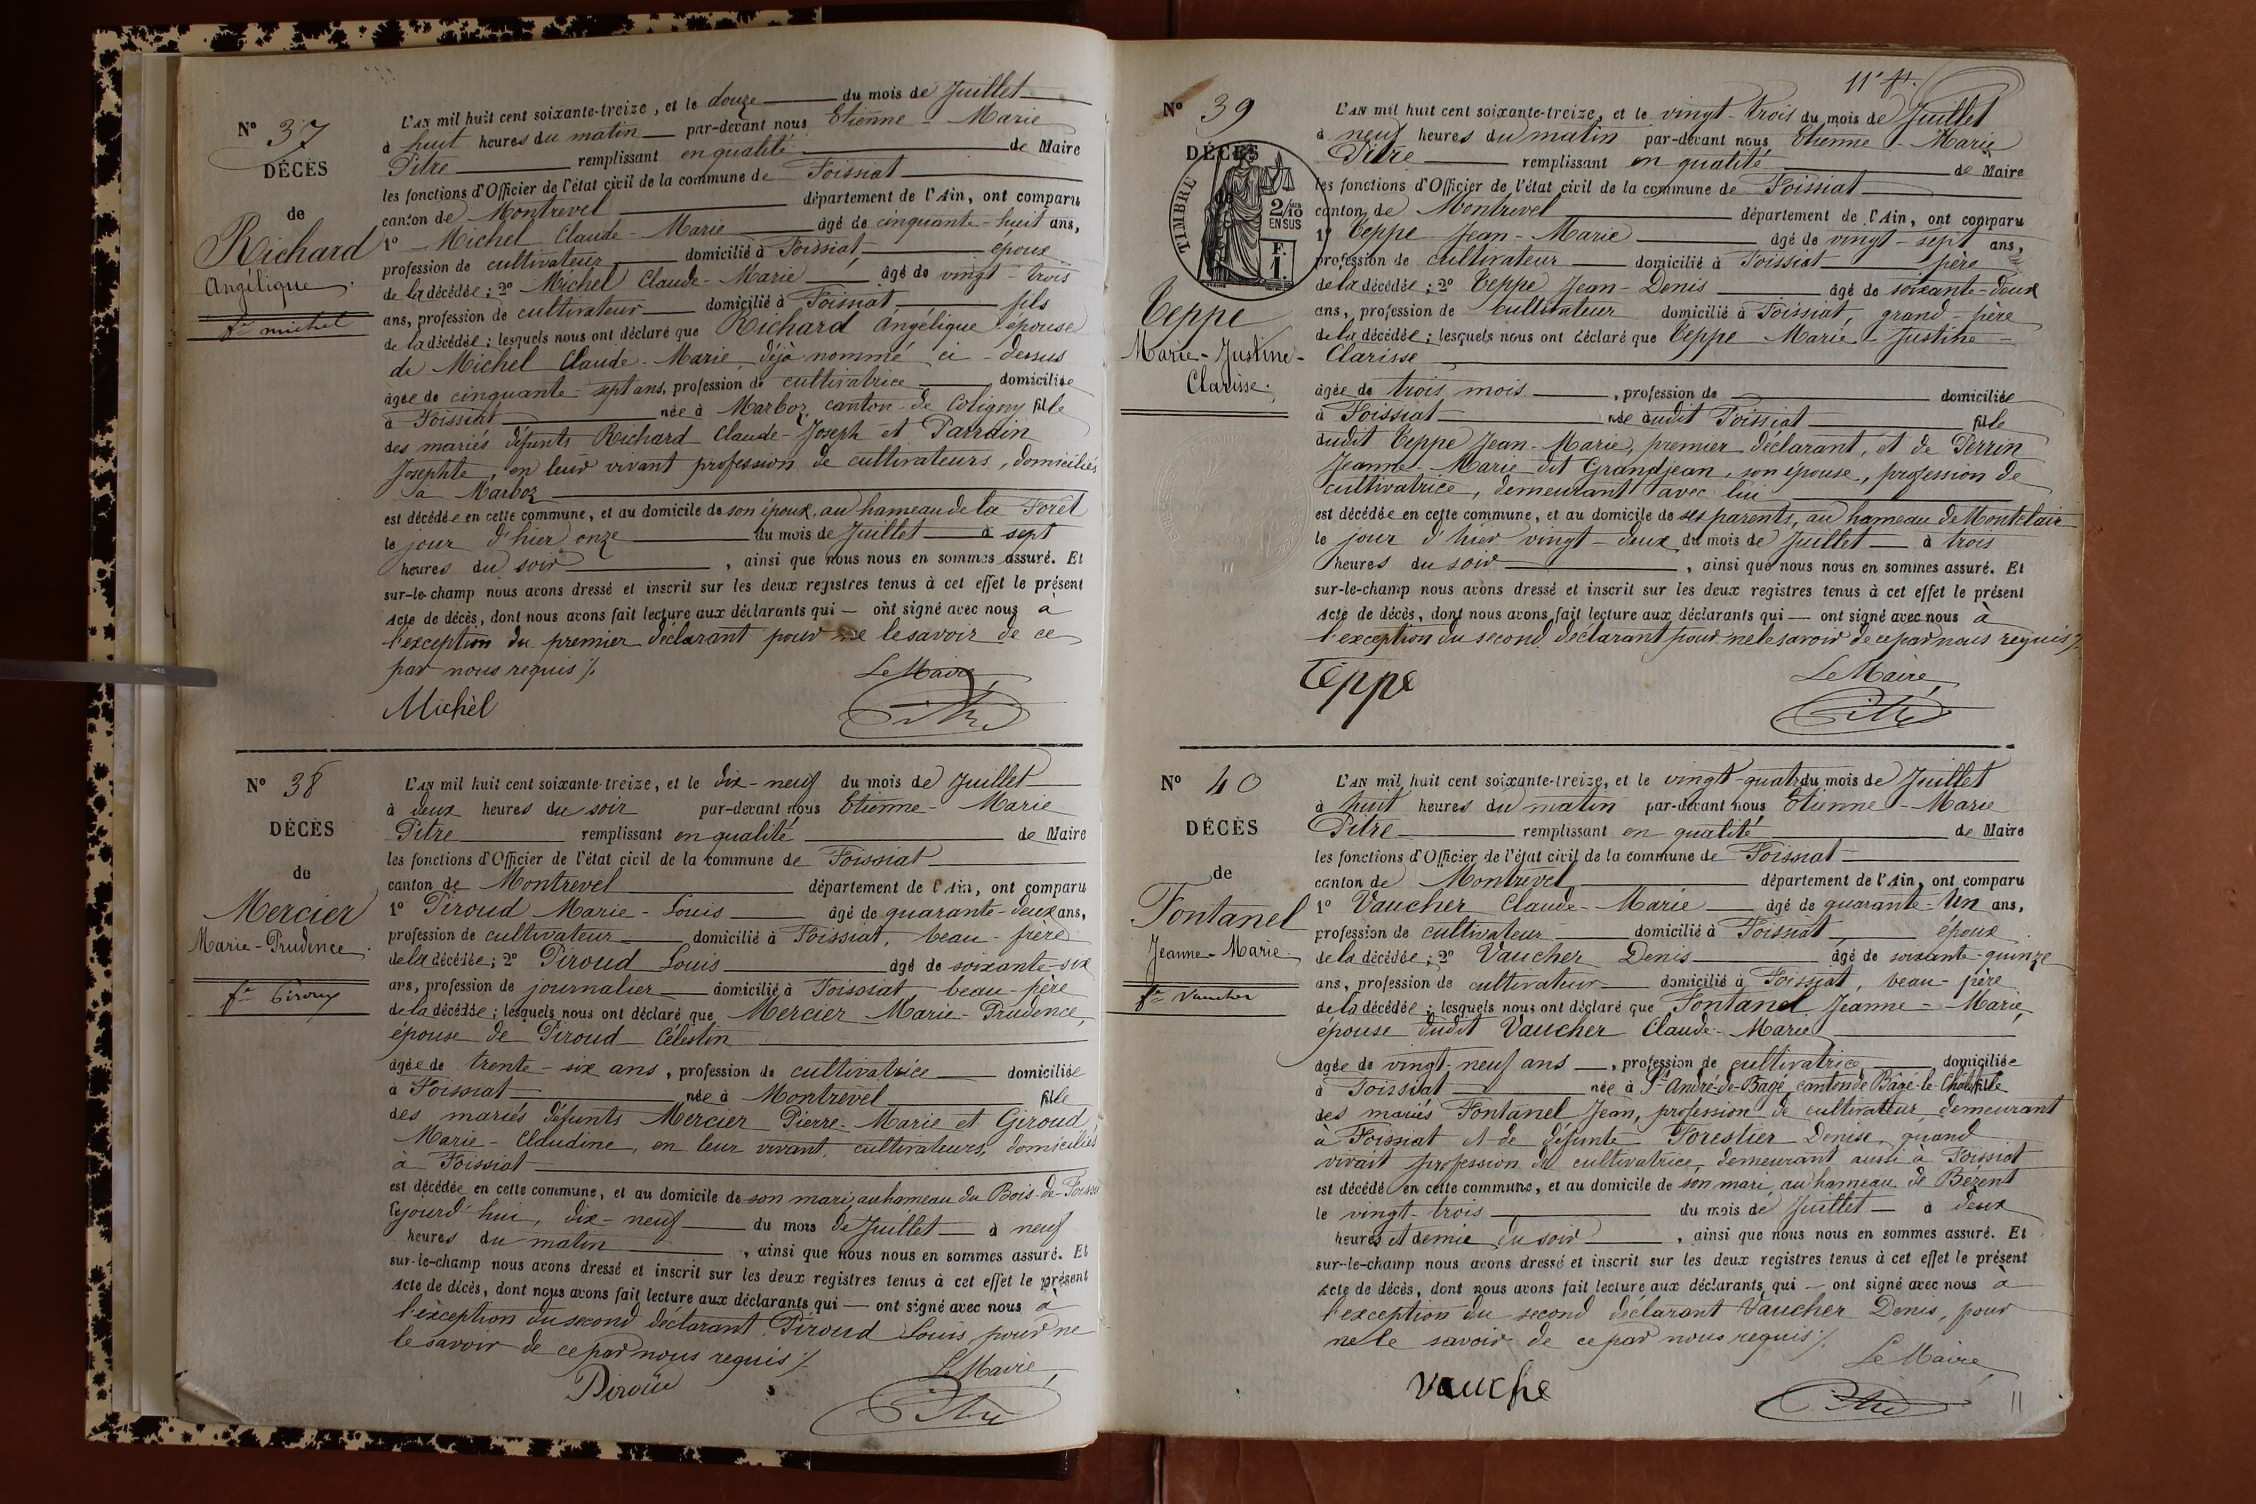 N° 37
DÉCÈS
de
Richard
Angélique.
fe michel
L'AN mil huit cent soixante-treize, et le douze du mois de Juillet
à huit heures du matin par-devant nous Etienne-Marie
Pitre remplissant en qualité de Maire
les fonctions d'Officier de l'état civil de la commune de Foissiat
canton de Montrevel département de l'Ain, ont comparu
1° Michel Claude-Marie âgé de cinquante-huit ans,
profession de cultivateur domicilié à Foissiat, époux
de la décédée; 2° Michel Claude-Marie âgé de vingt-trois
ans, profession de cultivateur domicilié à Foissiat fils
de la décédée; lesquels nous ont déclaré que Richard Angélique épouse
de Michel Claude-Marie, déjà nommé ci-dessus
âgée de cinquante-sept ans, profession de cultivatrice domiciliée
à Foissiat née à Marboz, canton de Coligny fille
des mariés défunts Richard Claude-Joseph et Parrain
Josephte, en leur vivant profession de cultivateurs, domiciliés
à Marboz
est décédée en cette commune, et au domicile de son époux, au hameau de la Forêt
le jour d'hier onze du mois de Juillet à sept
heures du soir, ainsi que nous nous en sommes assuré. Et
sur-le-champ nous avons dressé et inscrit sur les deux registres tenus à cet effet le présent
Acte de décès, dont nous avons fait lecture aux déclarants qui — ont signé avec nous à
l'exception du premier déclarant pour ne le savoir de ce
par nous requis /.
Le Maire,
Michel
Pitre
N° 38
DÉCÈS
de
Mercier
Marie-Prudence.
fe Piroux
L'AN mil huit cent soixante-treize, et le dix-neuf du mois de Juillet
à deux heures du soir par-devant nous Etienne-Marie
Pitre remplissant en qualité de Maire
les fonctions d'Officier de l'état civil de la commune de Foissiat
canton de Montrevel département de l'Ain, ont comparu
1° Piroud Marie-Louis âgé de quarante-deux ans,
profession de cultivateur domicilié à Foissiat, beau-frère
de la décédée; 2° Piroud Louis âgé de soixante-six
ans, profession de journalier domicilié à Foissiat beau-père
de la décédée; lesquels nous ont déclaré que Mercier Marie-Prudence,
épouse de Piroud Célestin
âgée de trente-six ans, profession de cultivatrice domiciliée
à Foissiat née à Montrevel fille
des mariés défunts Mercier Pierre-Marie et Giroud
Marie-Claudine, en leur vivant, cultivateurs, domiciliés
à Foissiat
est décédée en cette commune, et au domicile de son mari, au hameau du Bois-de-Foissiat
cejourd'hui, dix-neuf du mois de Juillet à neuf
heures du matin, ainsi que nous nous en sommes assuré. Et
sur-le-champ nous avons dressé et inscrit sur les deux registres tenus à cet effet le présent
Acte de décès, dont nous avons fait lecture aux déclarants qui — ont signé avec nous à
l'exception du second déclarant Piroud Louis pour ne
le savoir de ce par nous requis /.
Le Maire,
Piroux
Pitre
11e ft.
N° 39
DÉCÈS
de
TIMBRE
2/10 EN SUS
F. 1.
Teppe
Marie-Justine-
Clarisse.
L'AN mil huit cent soixante-treize, et le vingt-trois du mois de Juillet
à neuf heures du matin par-devant nous Etienne-Marie
Pitre remplissant en qualité de Maire
les fonctions d'Officier de l'état civil de la commune de Foissiat
canton de Montrevel département de l'Ain, ont comparu
1° Teppe Jean-Marie âgé de vingt-sept ans,
profession de cultivateur domicilié à Foissiat père
de la décédée; 2° Teppe Jean-Denis âgé de soixante-deux
ans, profession de cultivateur domicilié à Foissiat, grand-père
de la décédée; lesquels nous ont déclaré que Teppe Marie-Justine-
Clarisse
âgée de trois mois, profession de domiciliée
à Foissiat née audit Foissiat fille
dudit Teppe Jean-Marie, premier déclarant, et de Perrin
Jeanne-Marie dit Grandjean, son épouse, profession de
cultivatrice, demeurant avec lui
est décédée en cette commune, et au domicile de ses parents, au hameau de Montclair
le jour d'hier vingt-deux du mois de Juillet à trois
heures du soir, ainsi que nous nous en sommes assuré. Et
sur-le-champ nous avons dressé et inscrit sur les deux registres tenus à cet effet le présent
Acte de décès, dont nous avons fait lecture aux déclarants qui — ont signé avec nous à
l'exception du second déclarant pour ne le savoir de ce par nous requis /.
Le Maire,
Teppe
Pitre
N° 40
DÉCÈS
de
Fontanel
Jeanne-Marie
fe Vaucher
L'AN mil huit cent soixante-treize, et le vingt-quatre du mois de Juillet
à huit heures du matin par-devant nous Etienne-Marie
Pitre remplissant en qualité de Maire
les fonctions d'Officier de l'état civil de la commune de Foissiat
canton de Montrevel département de l'Ain, ont comparu
1° Vaucher Claude-Marie âgé de quarante-un ans,
profession de cultivateur domicilié à Foissiat époux
de la décédée; 2° Vaucher Denis âgé de soixante-quinze
ans, profession de cultivateur domicilié à Foissiat, beau-père
de la décédée; lesquels nous ont déclaré que Fontanel Jeanne-Marie,
épouse dudit Vaucher Claude-Marie
âgée de vingt-neuf ans, profession de cultivatrice domiciliée
à Foissiat née à St André-de-Bagé, canton de Bâgé-le-Châtel fille
des mariés Fontanel Jean, profession de cultivateur demeurant
à Foissiat et de défunte Forestier Denise, quand
vivait profession de cultivatrice, demeurant aussi à Foissiat
est décédé en cette commune, et au domicile de son mari, au hameau de Bézent
le vingt-trois du mois de Juillet à deux
heures et demie du soir, ainsi que nous nous en sommes assuré. Et
sur-le-champ nous avons dressé et inscrit sur les deux registres tenus à cet effet le présent
Acte de décès, dont nous avons fait lecture aux déclarants qui — ont signé avec nous à
l'exception du second déclarant Vaucher Denis, pour
ne le savoir de ce par nous requis /.
Le Maire,
vauche
Pitre
11